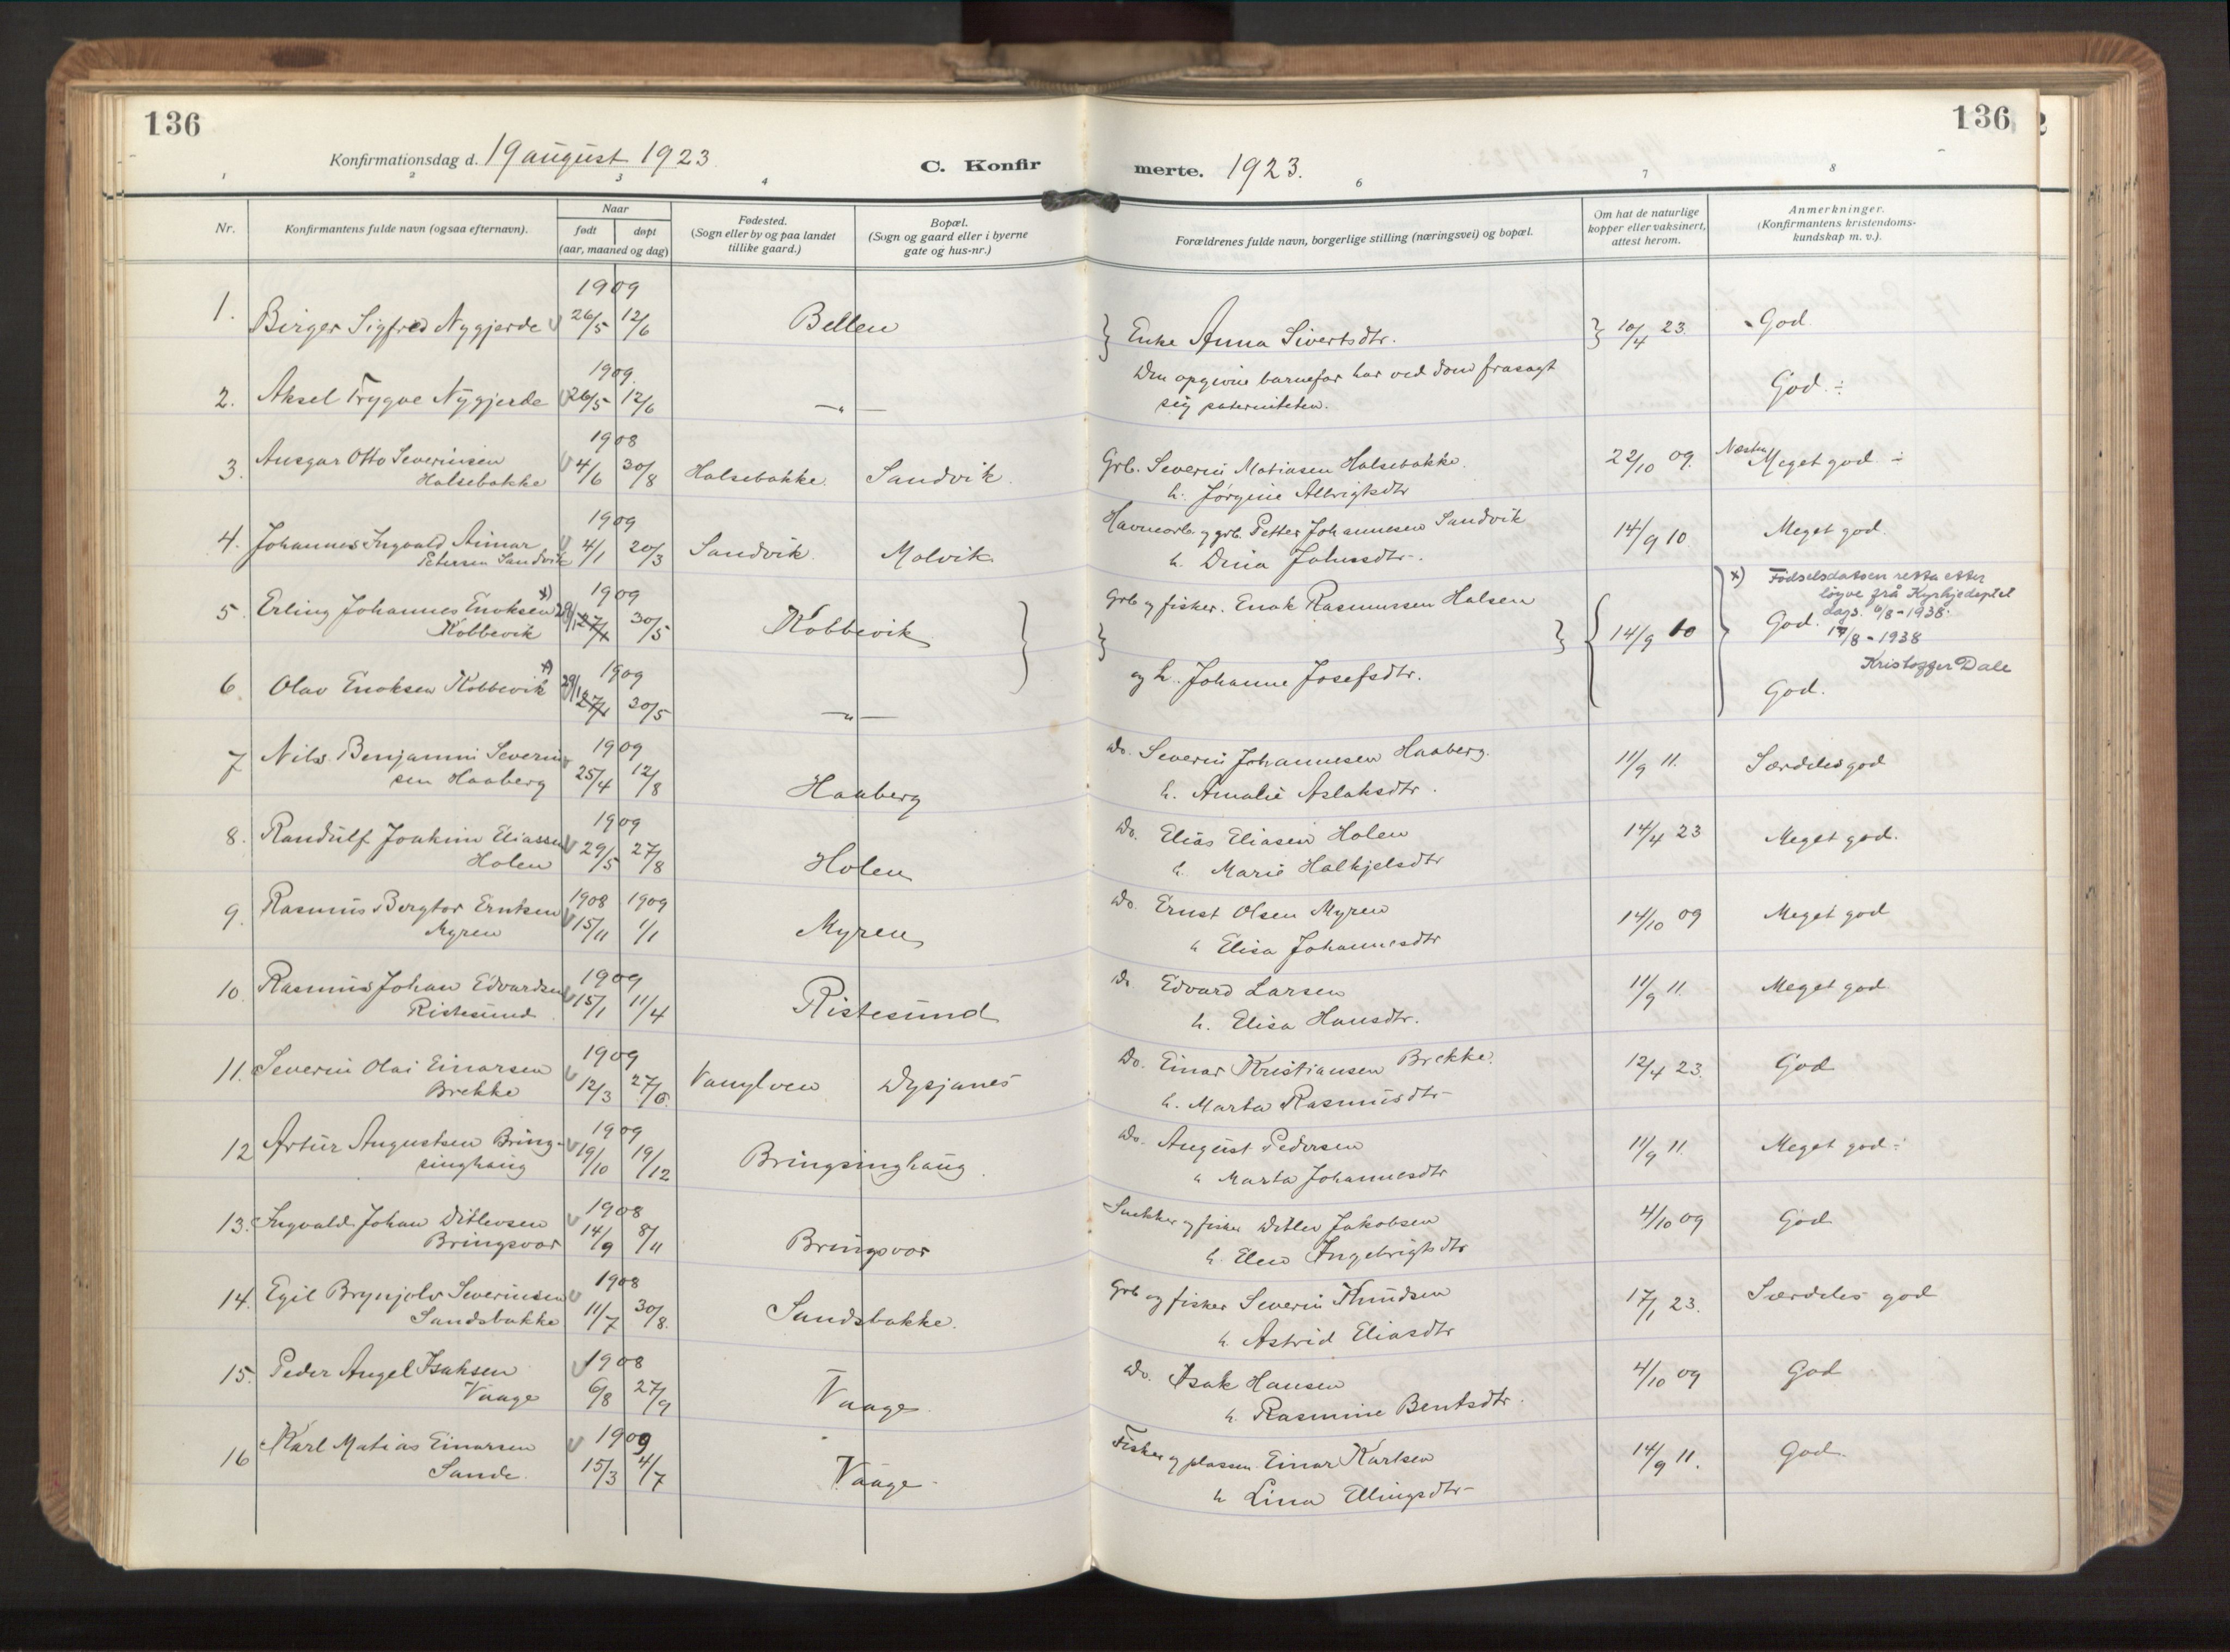 136
136
Konfirmationsdag d. 19 august 1923.
C. Konfirmerte. 1923.
1 2 3 4 6 7 8
Nr.
Konfirmantens fulde navn (ogsaa efternavn).
Naar
født døpt
(aar, maaned og dag)
Fødested.
(Sogn eller by og paa landet
tillike gaard.)
Bopæl.
(Sogn og gaard eller i byerne
gate og hus-nr.)
Forældrenes fulde navn, borgerlige stilling (næringsvei) og bopæl.
Om hat de naturlige
kopper eller vaksinert,
attest herom.
Anmerkninger.
(Konfirmantens kristendoms-
kundskap m. v.).
1909
1. Birger Sigfred Nygjerde 26/5 12/6 Bellen Enke Anna Sivertsdtr. 10/4 23 God
Den opgivne barnefar har ved dom frasagt
sig paterniteten.
1909
2. Aksel Trygve Nygjerde 26/5 12/6 —"— God ÷
1908
3. Ansgar Otto Severinsen
Halsebakke 4/6 30/8 Halsebakke. Sandvik. Grb. Severin Matiasen Halsebakke.
h. Jørgine Albrigtsdtr 22/10 09. Næsten Meget god ÷
1909
4. Johannes Ingvald Aimar
Petersen Sandvik 4/1 20/3 Sandvik. Molvik Havnearb. og grb. Petter Johannesen Sandvik
h. Dina Johnsdtr. 14/9 10. Meget god.
1909
5. Erling Johannes Enoksen x)
Kobbevik 29/1 27/1 30/5 Kobbevik Grb og fisker. Enok Rasmussen Halsen 14/9 10 God.
x) Fødselsdatoen retta etter
løyve frå Kyrkjedeptet
dags. 6/8-1938.
17/8-1938
Kristoffer Dale
1909
6. Olav Enoksen Kobbevik x) 29/1 27/1 30/5 —"— og h. Johanne Josefsdtr. God.
1909
7 Nils Benjamin Severin
sen Haaberg 25/4 12/8 Haaberg Do. Severin Johannesen Haaberg.
h. Amalie Aslaksdtr. 11/9 11. Særdeles god
1909
8. Randulf Joakim Eliassen
Holen 29/5 27/8 Holen Do. Elias Eliasen Holen
h. Marie Halkjelsdtr 14/4 23 Meget god.
1908 1909
9. Rasmus Bergtor Erntsen
Myren 15/11 1/1 Myren Do. Ernst Olsen Myren
h Elisa Johannesdtr 14/10 09 Meget god
1909
10. Rasmus Johan Edvardsen
Ristesund 15/1 11/4 Ristesund Do Edvard Larsen
h. Elisa Hansdtr. 11/9 11. Meget god
1909
11. Severin Olai Einarsen
Brekke 12/3 27/6. Vanylven Dysjanes Do. Einar Kristiansen Brekke.
h. Marta Rasmusdtr 12/4 23. God
1909
12 Artur Augustsen Bring-
singhaug 19/10 19/12 Bringsinghaug. Do. August Pedersen
h Marta Johannesdtr 11/9 11. Meget god ÷
1908
13. Ingvald Johan Ditlevsen
Bringsvor 14/9 8/11 Bringsvor Snekker og fisker Ditlev Jakobsen
h. Elen Ingebrigtsdtr 4/10 09 God
1908
14. Egil Brynjolv Severinsen
Sandsbakke 11/7 30/8. Sandsbakke. Grb og fisker Severin Knudsen
h. Astrid Eliasdtr 17/1 23. Særdeles god
1908
15. Peder Angel Isaksen
Vaage 6/8 27/9 Vaage. Do. Isak Hansen
h. Rasmine Bentsdtr. 4/10 09 God
1909
16 Karl Matias Einarsen
Sande. 15/3 4/7 Vaage. Fisker og plassm. Einar Karlsen
h Lina Ellingsdtr 14/9 11. God.